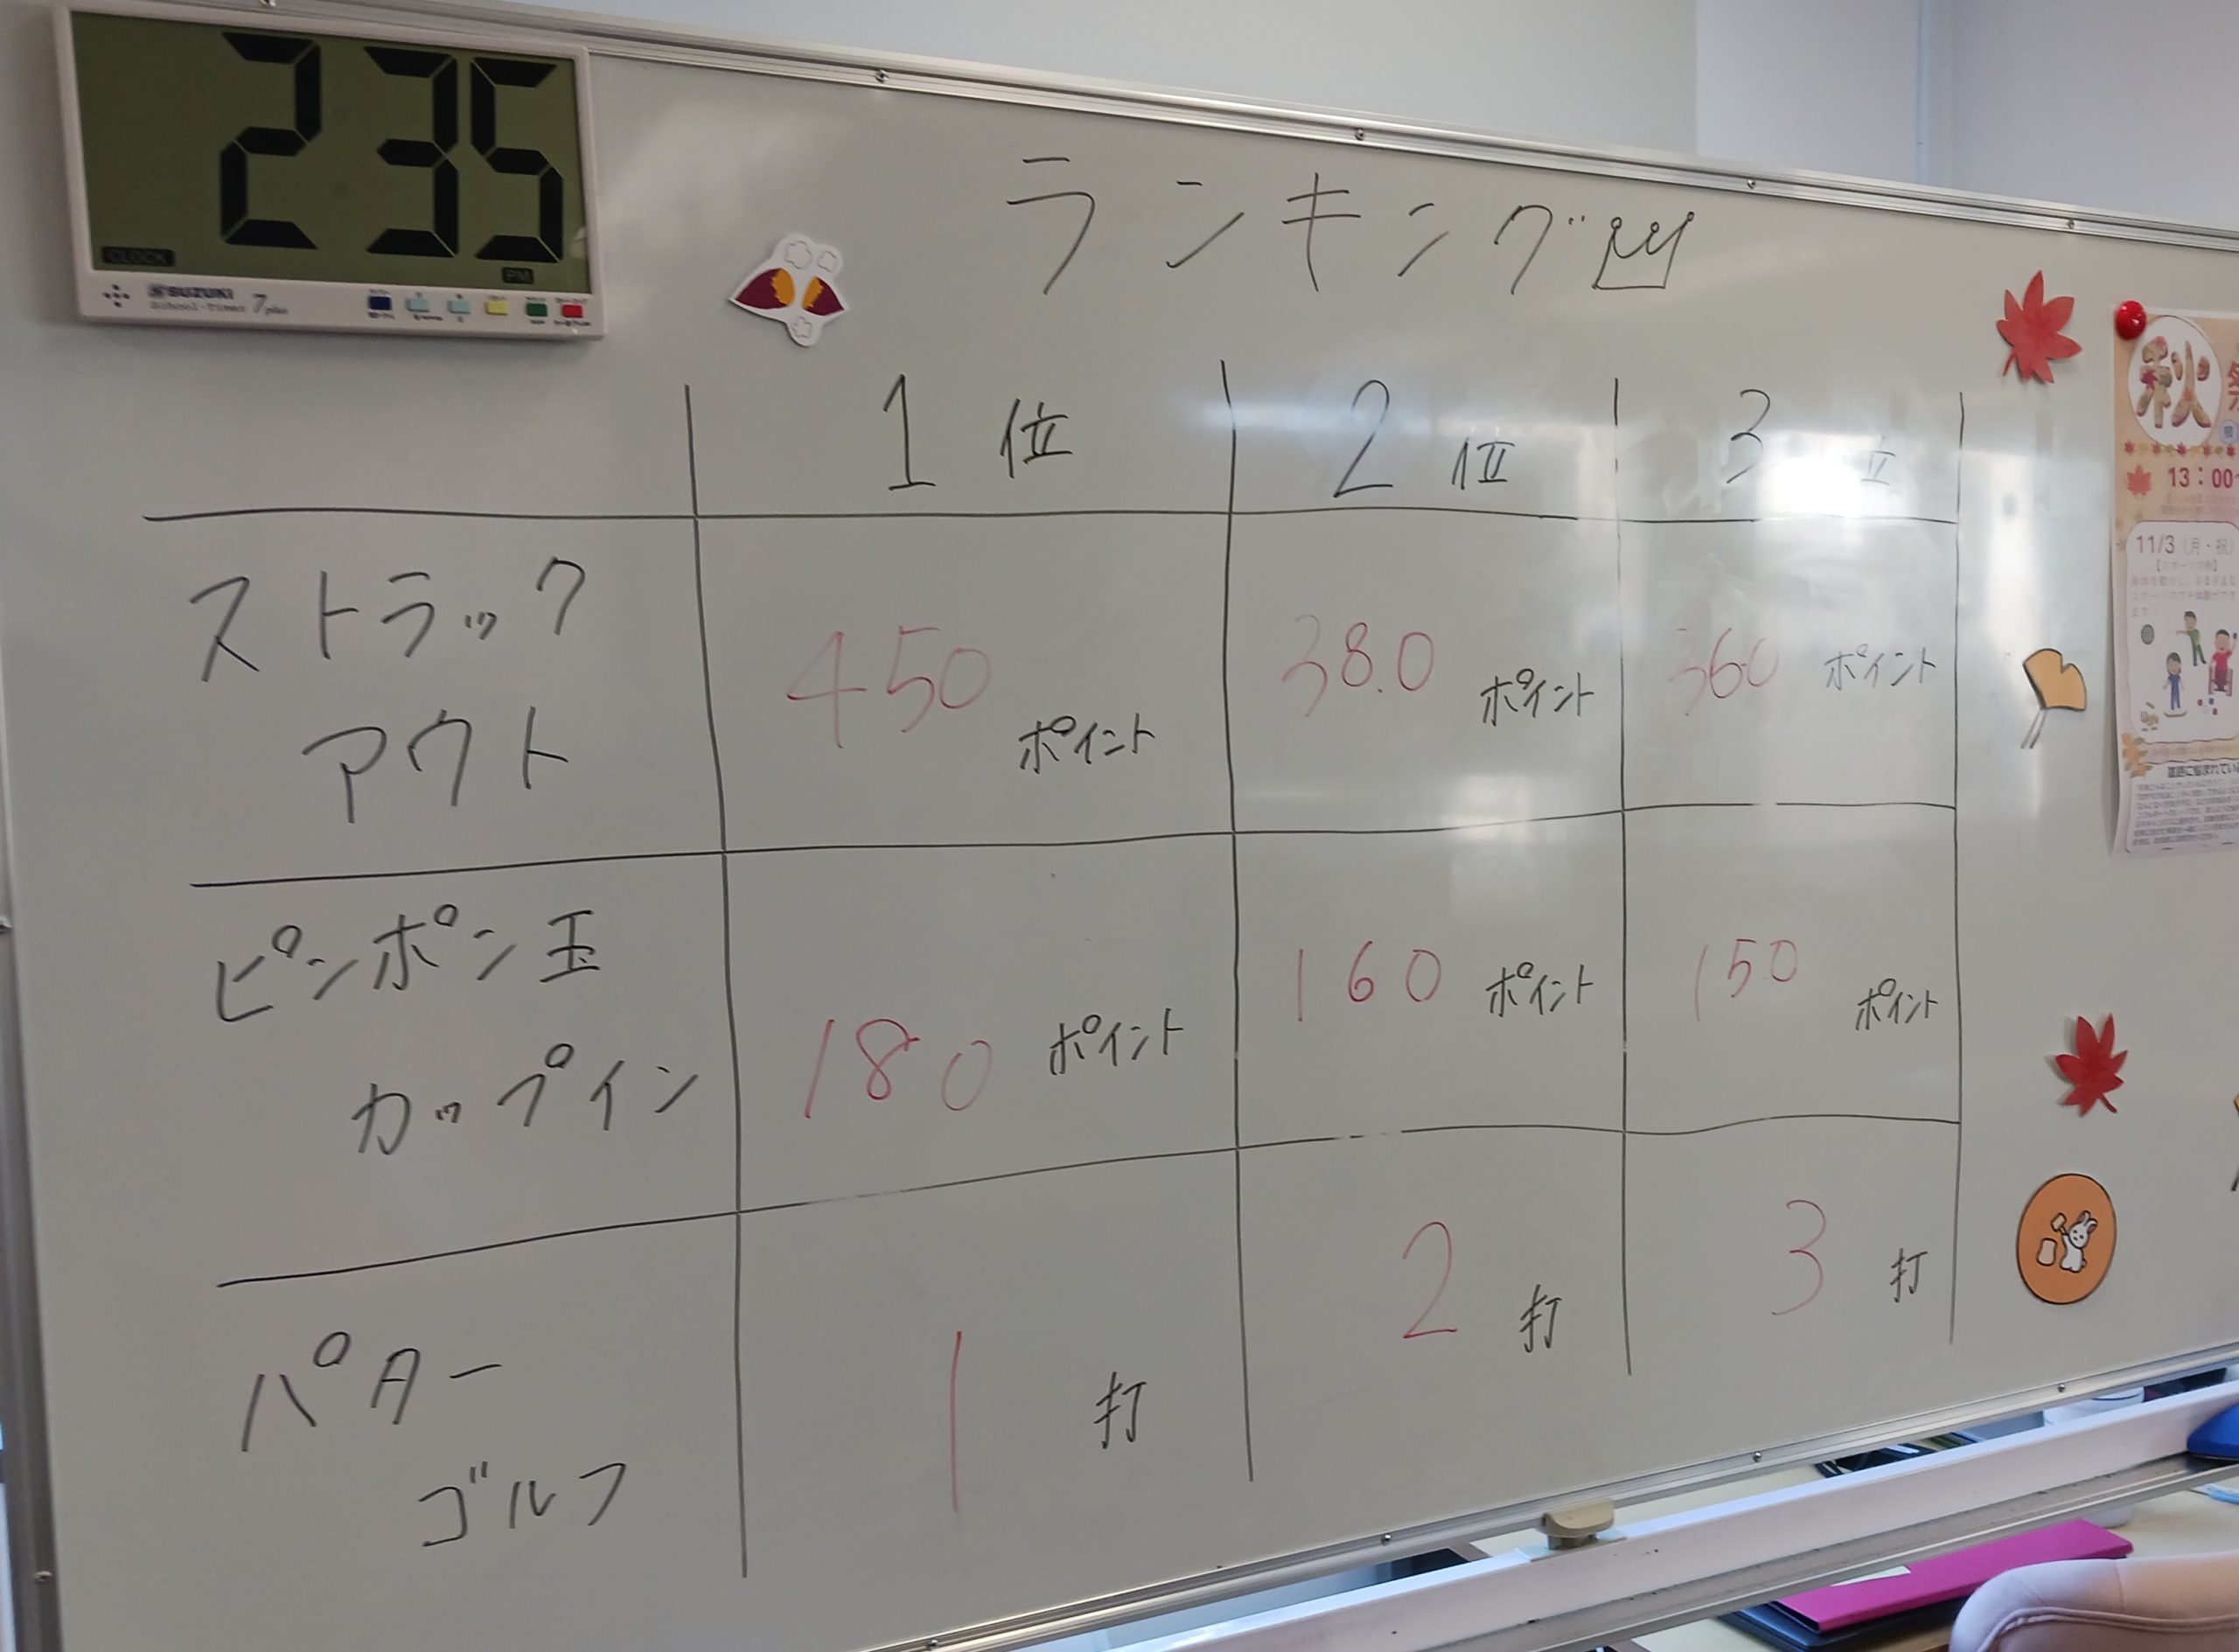 2 35
CLOCK
PM
SUZUKI
School-timer 7plus
ランキング
1位 2位 3位
ストラック
アウト
450 ポイント 380 ポイント 360 ポイント
ピンポン玉
カップイン
180 ポイント 160 ポイント 150 ポイント
パター
ゴルフ
1 打 2 打 3 打
秋
13:00
11/3 (月・祝)